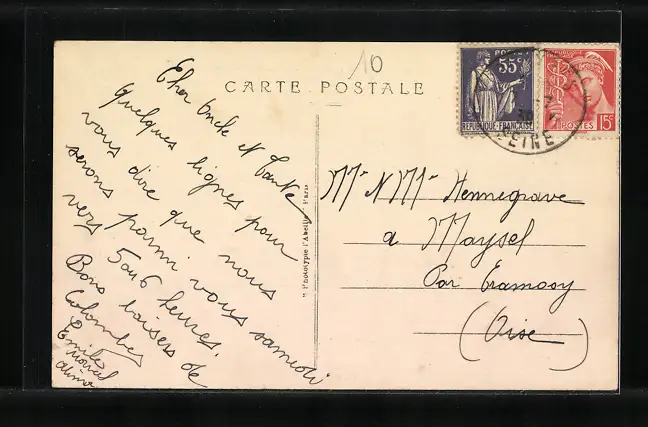 10
CARTE POSTALE
Cher Oncle et Tante
Quelques lignes pour
vous dire que nous
serons parmi vous samedi
vers 5 ou 6 heures.
Bons baisers de
Colombes
Emile
"Phototypie l'Abeille" Paris
POSTES
55c
REPUBLIQUE FRANÇAISE
POSTES 15c
SEINE
Mr N Mme Hennegrave
a Maysel
Par Cramoisy
(Oise)